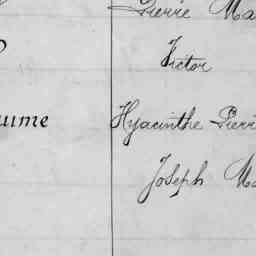 Pierre Ma
Victor
ume Hyacinthe Pierr
Joseph Ma